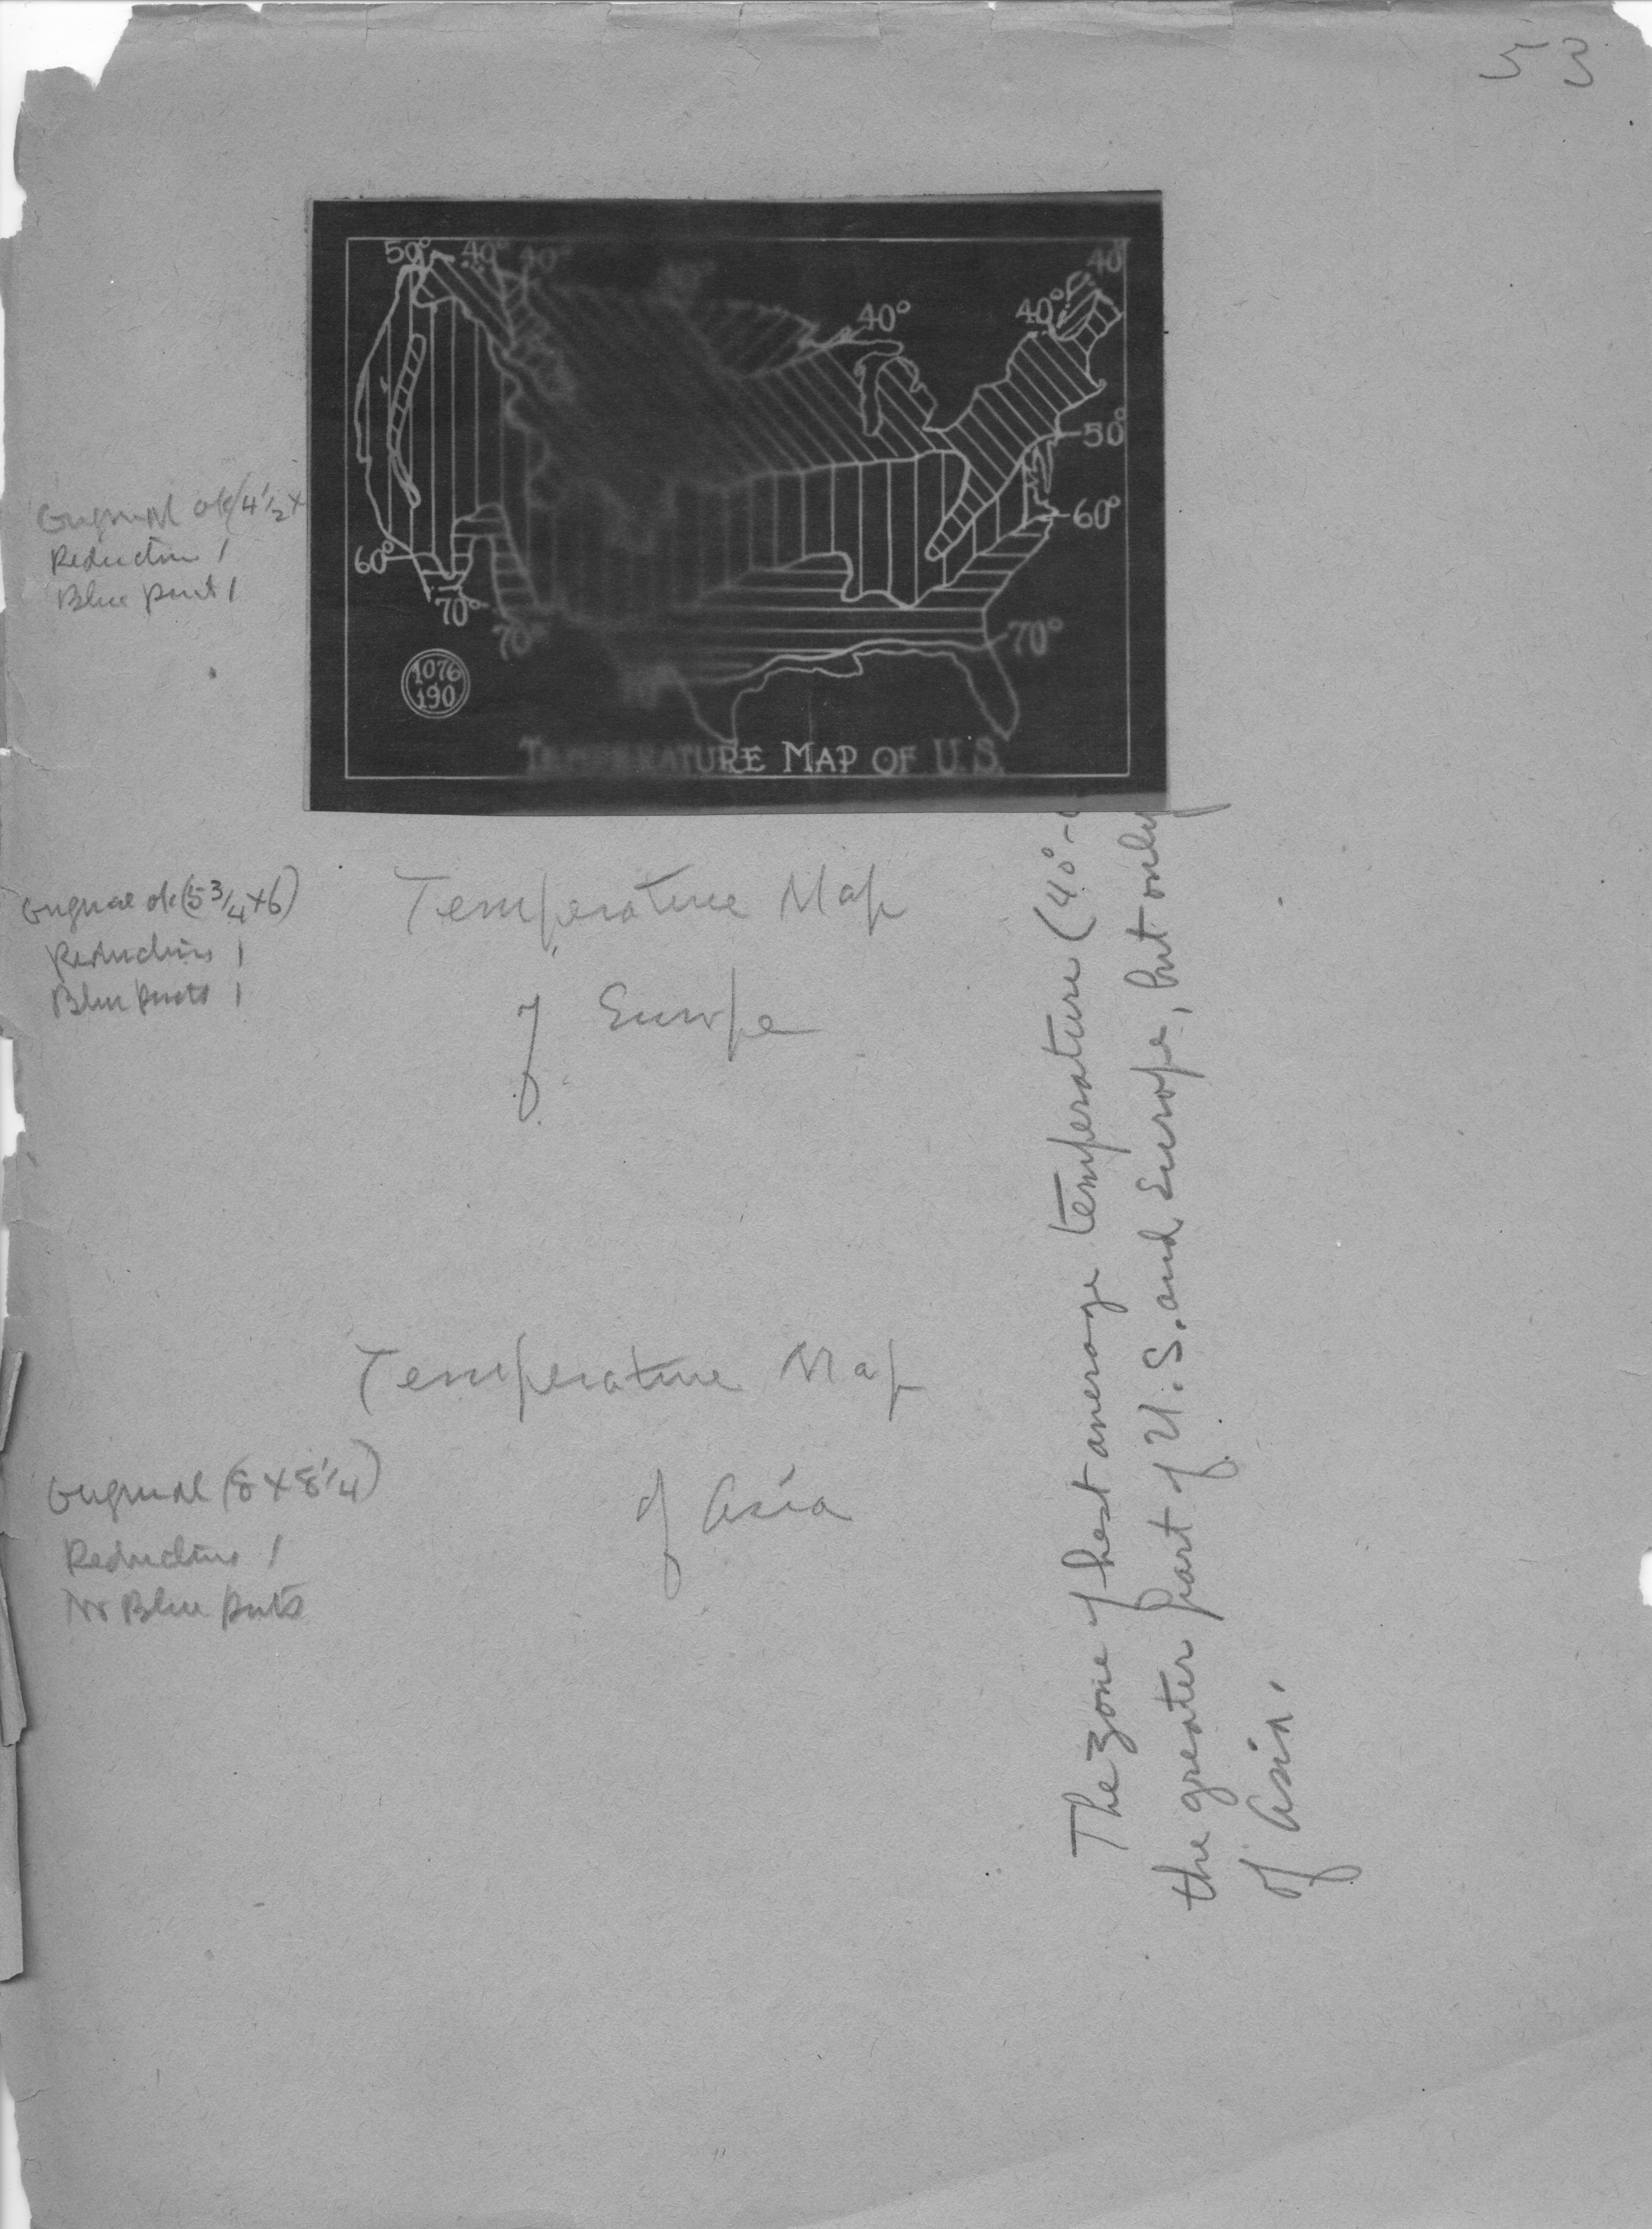 53
50° 40° 40° 40°
40° 40°
50°
60°
60°
70°
70°
70°
1076
190
TEMPERATURE MAP OF U.S.
Original ok (4 1/2 x
Reduction 1
Blue print 1
Original ok (5 3/4 x 6)
Reductions 1
Blue prints 1
Temperature Map
of Europe
Temperature Map
of Asia
Original (8 x 8 1/4)
Reductions 1
No Blue prints
The zone of best average temperature (40°-
the greater part of U.S. and Europe, but only
of Asia.